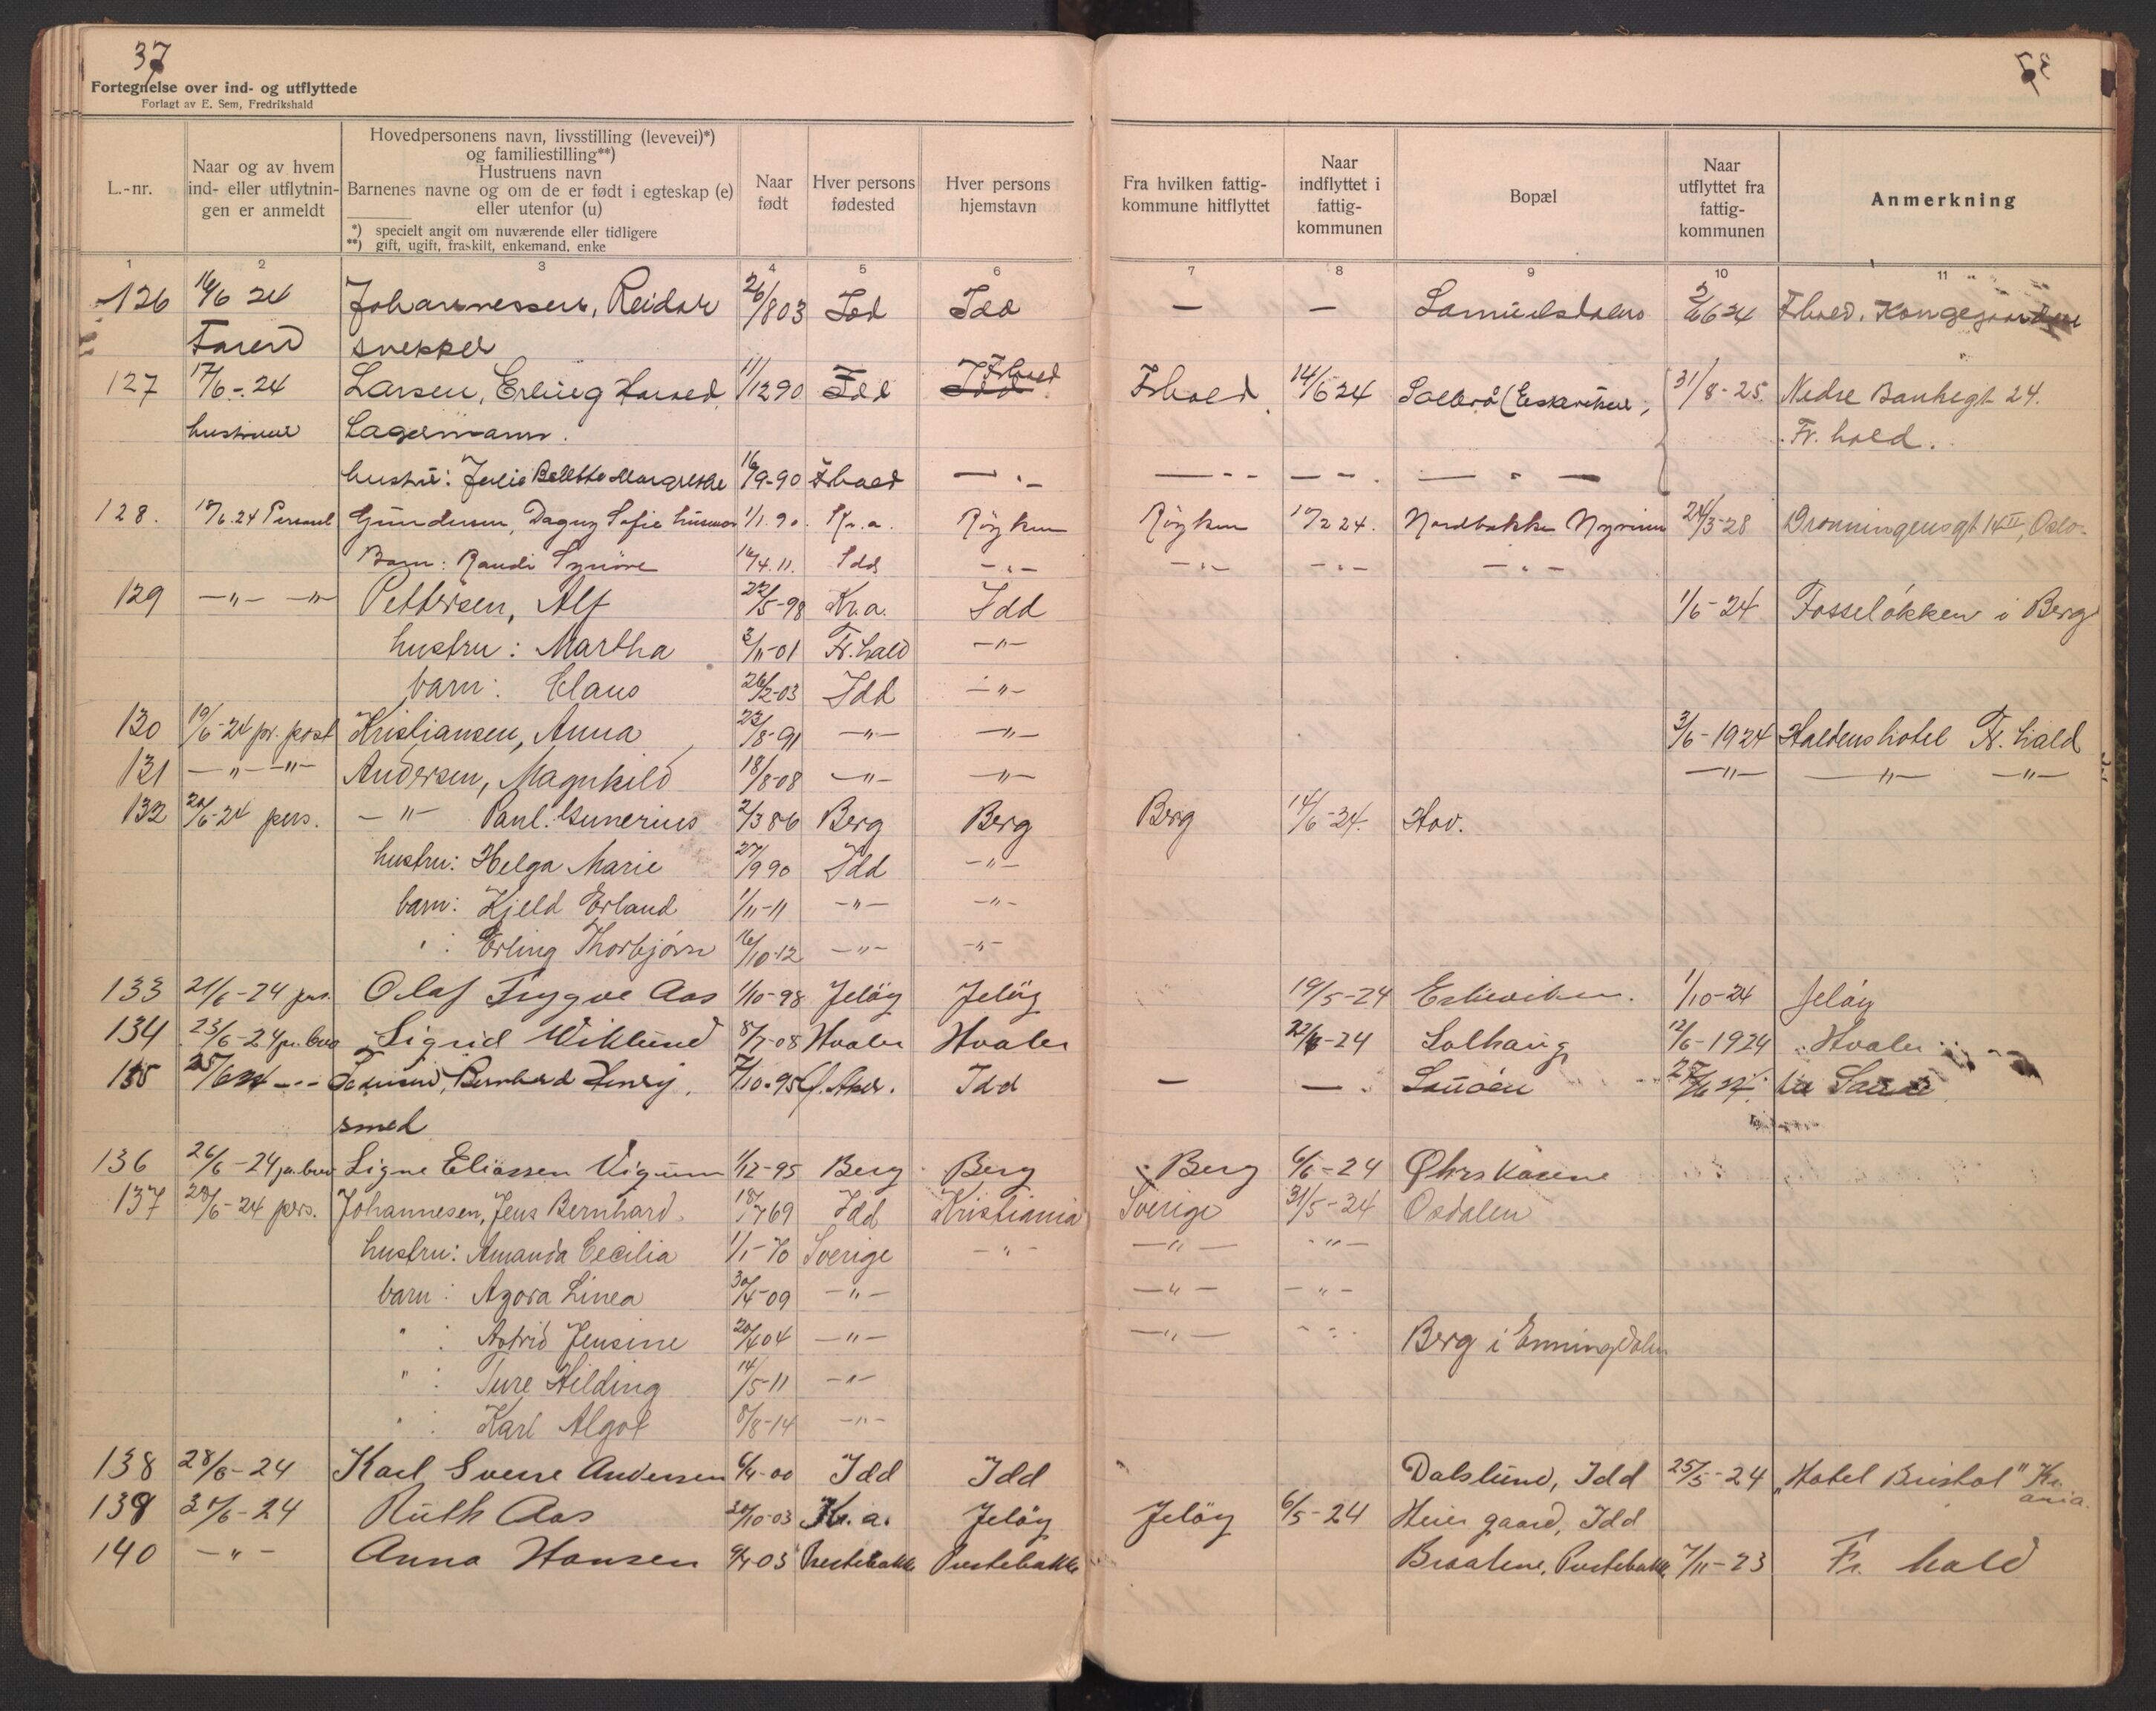 37
Fortegnelse over ind- og utflyttede
Forlagt av E. Sem, Fredrikshald
L.-nr. | Naar og av hvem ind- eller utflytnin-gen er anmeldt | Hovedpersonens navn, livsstilling (levevei)*) og familiestilling**) Hustruens navn Barnenes navne og om de er født i egteskap (e) eller utenfor (u) *) specielt angit om nuværende eller tidligere **) gift, ugift, fraskilt, enkemand, enke | Naar født | Hver persons fødested | Hver persons hjemstavn | Fra hvilken fattig-kommune hitflyttet | Naar indflyttet i fattig-kommunen | Bopæl | Naar utflyttet fra fattig-kommunen | Anmerkning
1 2 3 4 5 6 7 8 9 10 11
126 16/6 24 Johannessen, Reidar 26/8 03 Idd Idd — — Samuelsdalen 2/6 24 Fhald. Kongegaardene
Faren snekker
127 17/6-24 Larsen, Erling Harald 11/12 90 Idd Idd Fhald Fhald 14/6 24 Solbrå 31/8-25. Nedre Bankegt 24.
hustruen Lagermann. Fr. hald.
hustru: Julie Margrethe 16/9-90 Fhald — " — — " — — " — — " —
128. 17/6.24 Personl Gundersen, Dagny Sofie husmor 1/1.90. Kr.a. Røyken Røyken 17/2 24. Nordbakken 24/3-28 Dronningensgt 14 II, Oslo.
Barn: Randi Synøve 16/4.11. Idd — " — — " — — " — — " —
129 — " — — " — Pettersen, Alf 22/5-98 Kr.a. Idd 1/6-24 Fosseløkken i Berg
hustru: Martha 3/11-01 Fr. hald — " —
barn: Claus 26/2-03 Idd — " —
130 19/6-24 pr. post Kristiansen, Anna 23/8-91 — " — — " — 3/6-1924 Haldens hotel Fr. hald
131 — " — — " — Andersen, Magnhild 18/8-08 — " — — " — — " — — " — — " —
132 20/6-24 pers. — " — Paul Gunerius 2/3 86 Berg Berg Berg 14/6-24. Hov.
hustru: Helga Marie 27/9 90 Idd — " —
barn: Kjeld Erland 1/11-11 — " — — " —
" : Erling Thorbjørn 16/10-12 — " — — " —
133 21/6-24 prs. Olaf Trygve Aas 1/10-98 Jeløy Jeløy 19/5-24 Eskeviken. 1/10-24 Jeløy
134 23/6-24 pr. brev Sigrid Wiklund 8/7-08 Hvaler Hvaler 22/4-24 Solhaug 12/6-1924 Hvaler
135 25/6 24 — " — Bernhard Henry, 7/10-95 Idd — — 25/6 24.
smed
136 26/6-24 pr. brev Signe Eliassen Vigum 1/12-95 Berg Berg Berg 6/6-24
137 28/6-24 pers. Johannesen, Jens Bernhard. 18/7 69 Idd Kristiania Sverige 31/5-24 Osdalen
hustru: Amanda Cecilia 1/1-70 Sverige — " — — " — — " —
barn: Agora Linea 30/4-09 — " — — " — — " —
" : Astrid Jensine 20/4 04 — " — — " — — " — Berg i Enningdalen
" : Ture Hilding 14/5-11 — " —
" : Karl Algot 8/8-14 — " —
138 28/6-24 Karl Sverre Andersen 6/4-00 Idd Idd Dalslund, Idd 25/5-24 „Hotel Bristol" Kr.ania.
139 30/6-24 Ruth Aas 30/10-03 Kr.a. Jeløy Jeløy 6/5-24 Heier gaard, Idd
140 — " — Anna Hansen 9/4-03 Prestebakke Prestebakke Braatene, Prestebakke 7/11-23 Fr. hald